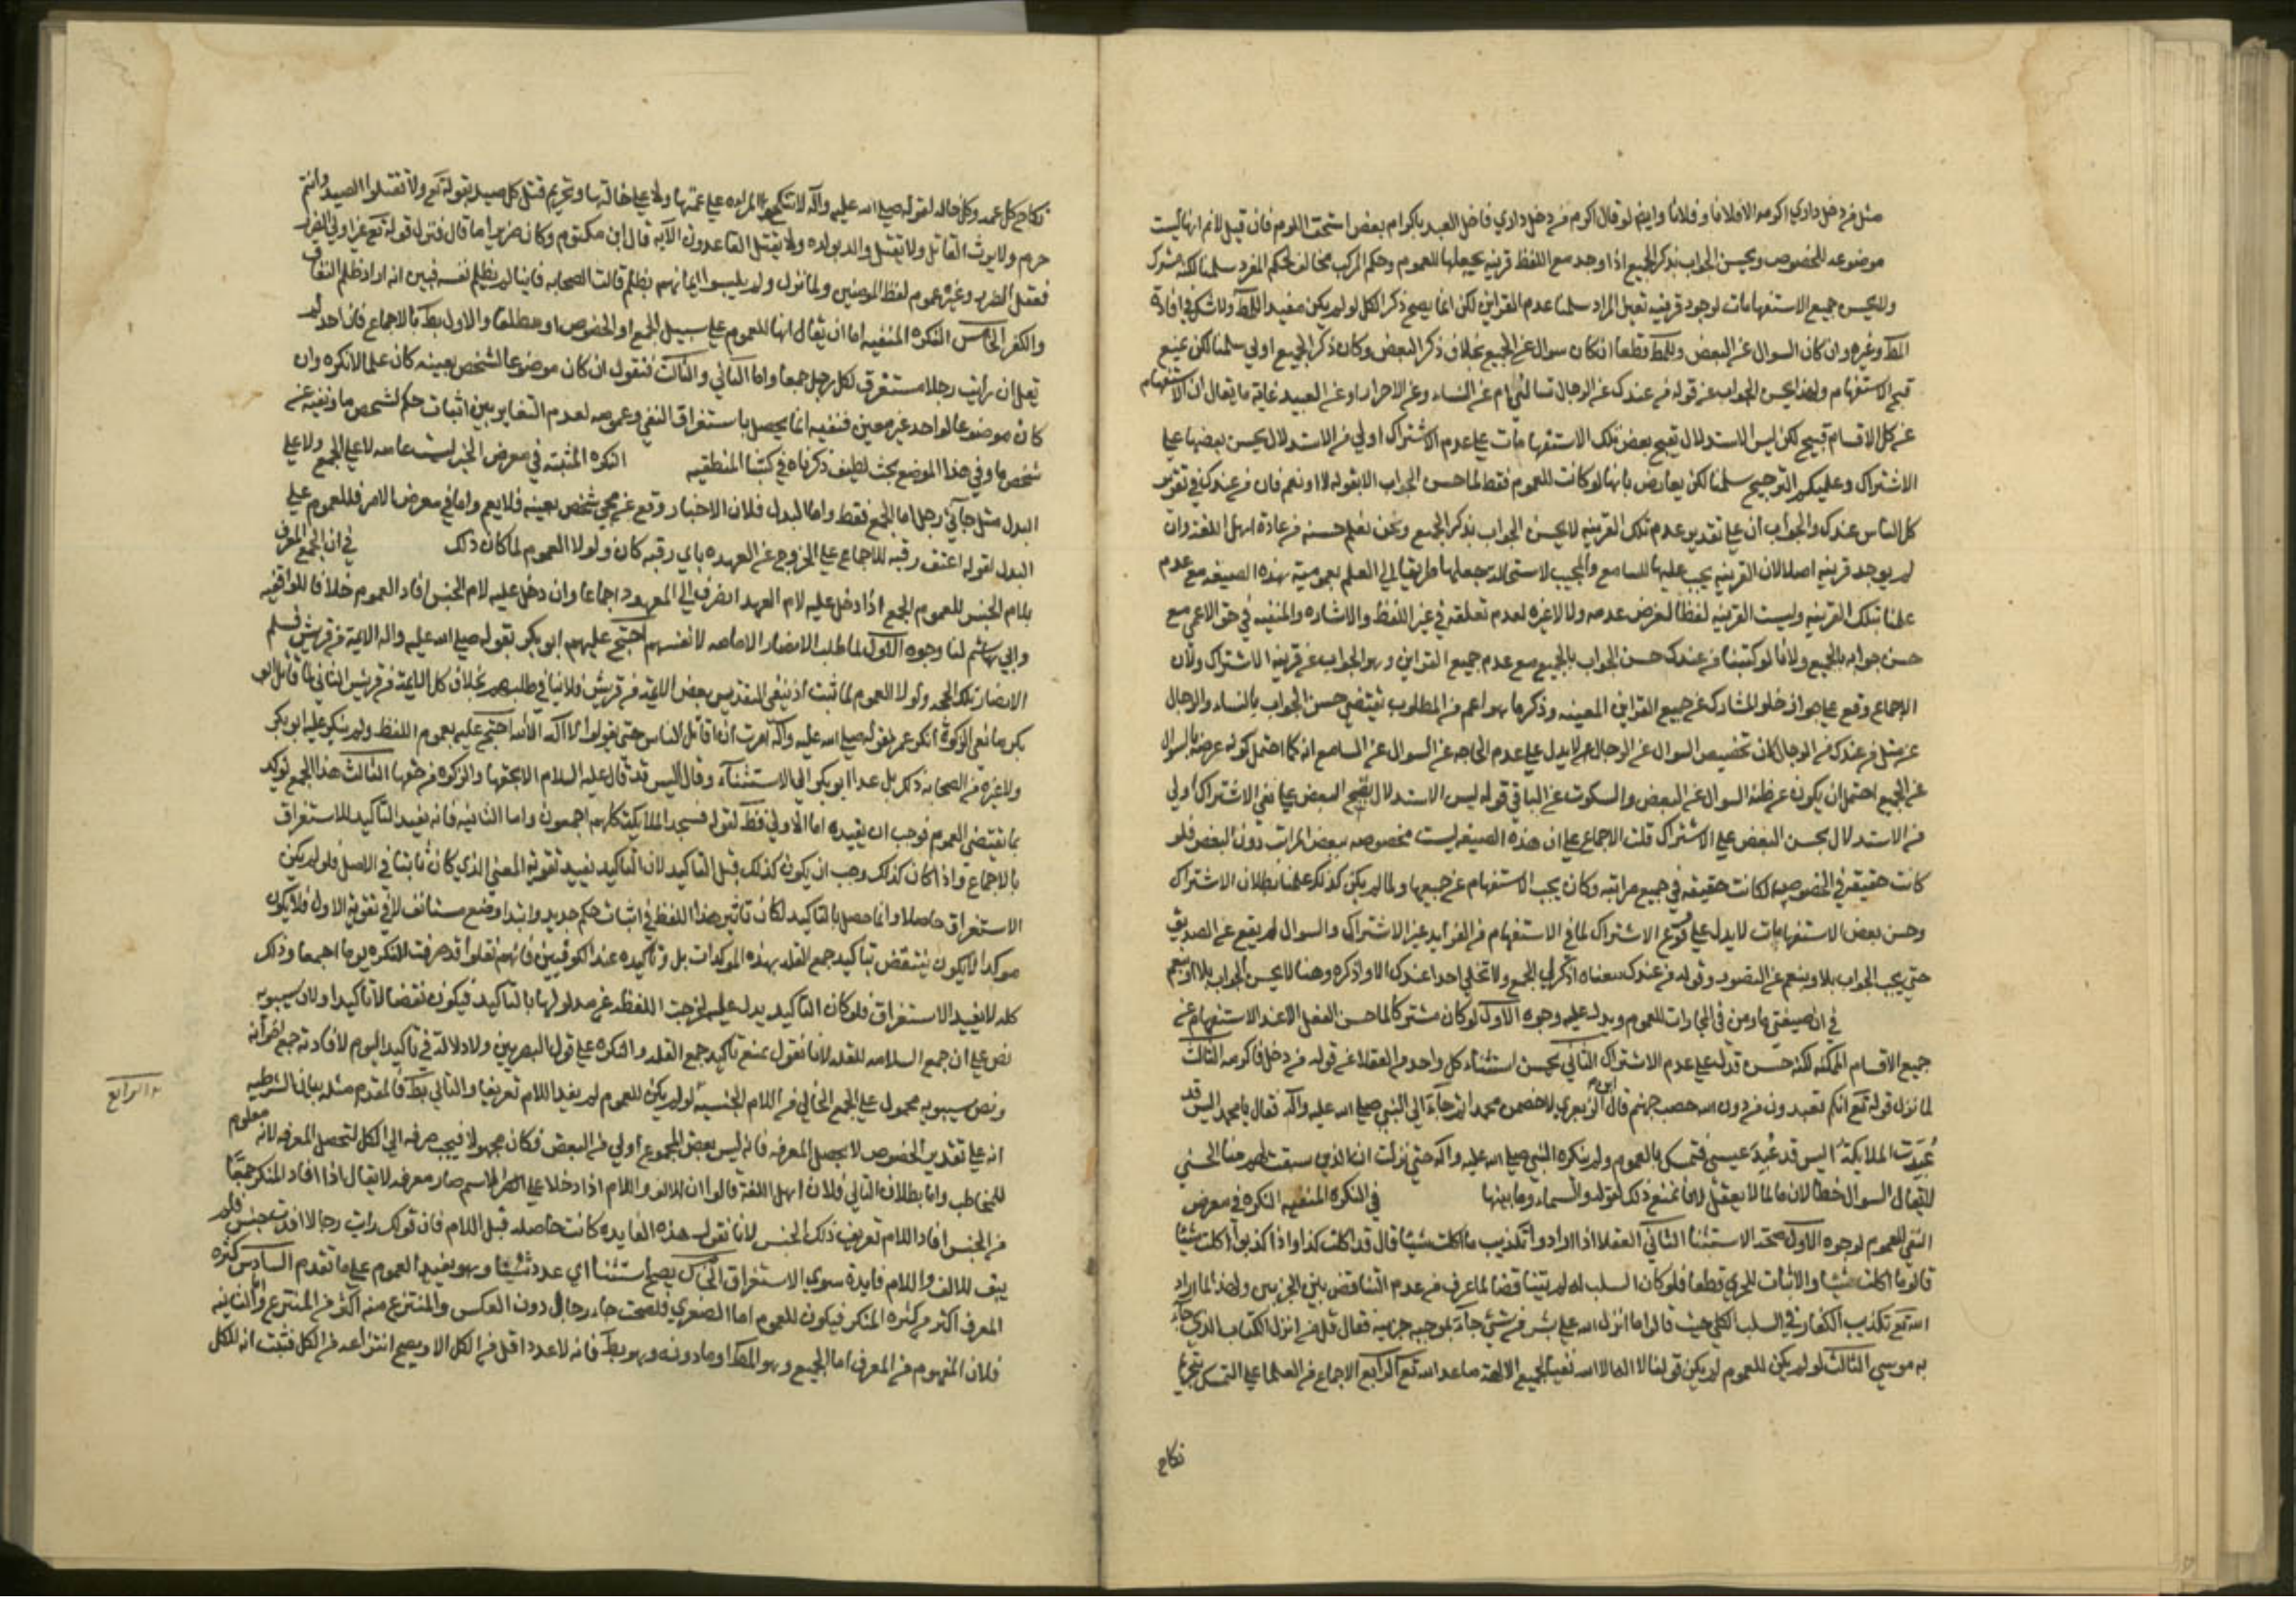 مثل من دخل داري اكرمه الا فلانا وفلانا وايضا لو قال اكرم من دخل داري فاخل العبد باكرام بعض استحق اللوم فان قيل لا نم انها ليست
موضوعه للخصوص ويحسن الجواب بذكر الجميع اذا وجد مع اللفظ قرينه يجعلها للعموم وحكم المركب مخالف لحكم المفرد سلمنا لكنه مشترك
ولا يحسن جميع الاستفهامات لوجود قرينه تعين المراد سلمنا عدم القراين لكن انما يصح ذكر الكل لو لم يكن مفيدا للمط ولا شك في افادة
المط وغيره وان كان السوال عن البعض وللمط قطعا ان كان سوال عن الجميع بخلاف ذكر البعض وكان ذكر الجميع اولي سلمنا لكن نمنع
قبح الاستفهام ولهذا يحسن الجواب عن قوله من عندك عن الرجال تسالني ام عن النساء وعن الاحرار او عن العبيد غاية ما يقال ان الاستفهام
عن كل الاقسام قبيح لكن ليس الاستدلال بقبح بعض تلك الاستفهامات علي عدم الاشتراك اولي من الاستدلال بحسن بعضها علي
الاشتراك وعليكم الترجيح سلمنا لكن يعارض بانها لو كانت للعموم فقط لما حسن الجواب الا بقوله لا او نعم فان من عندك في تقدير
كل الناس عندك والجواب ان علي تقدير عدم تلك القرينه لا يحسن الجواب بذكر الجميع ونحن نعلم حسنه من عادة اهل اللغة وان
لم يوجد قرينه اصلا لان القرينه يجب عليها للسامع والمجيب لاستحالة جعلها طريقا الي العلم بعمومية هذه الصيغه مع عدم
علمنا بتلك القرينه وليست القرينه لفظا لفرض عدمه ولا لا غيره لعدم تعلقه في غير اللفظ والاشاره والمنفيه في حق الاعمي مع
حسن جوابه بالجميع ولانا لو كتبنا من عندك حسن الجواب بالجميع مع عدم جميع القراين وهو الجواب عن قرينه الاشتراك ولان
الاجماع وقع علي جواز خلو المشترك عن جميع القراين المعينه وذكر ما هو اعم من المطلوب يقتضي حسن الجواب بالنساء والرجال
عن مثل من عندك من الرجال لان تخصيص السوال عن الرجال لا يدل علي عدم الحاجه عن السوال عن السامع انه كما احتمل كونه غرضه بالسوال
عن الجميع احتمل ان يكون غرضه السوال عن البعض والسكوت عن الباقي قوله ليس الاستدلال بقبح البعض علي نفي الاشتراك اولي
من الاستدلال بحسن البعض علي الاشتراك قلت الاجماع علي ان هذه الصيغه ليست مخصوصه ببعض المراتب دون البعض فلو
كانت حقيقة في الخصوص لكانت حقيقه في جميع مراتبه وكان يجب الاستفهام عن جميعها ولما لم يكن كذلك علمنا بطلان الاشتراك
وحسن بعض الاستفهامات لا يدل علي وقوع الاشتراك لما في الاستفهام من الفوايد غير الاشتراك والسوال لم يقع عن التصديق
حتي يجب الجواب بلا وبنعم عن التصور وقوله من عندك معناه اذكر لي الجمع ولا تخلي احدا عندك الا واذكره وهنا لا يحسن الجواب بلا او نعم
في ان صيغتي ما ومن في المجازات للعموم ويدل عليه وجوه الاول لو كان مشتركا لما حسن الفعل الا عند الاستفهام عن
جميع الاقسام الممكنه لكنه حسن فدل علي عدم الاشتراك الثاني يحسن استثناء كل واحد من العقلا عن قوله من دخل فاكرمه الثالث
لما نزل قوله تع انكم وما تعبدون من دون الله حصب جهنم قال ابن الزبعري لاخصمن محمدا ثم جاء الي النبي صلي الله عليه وآله فقال يا محمد اليس قد
عُبِدَت الملايكة اليس قد عُبِدَ عيسي فتمسك بالعموم ولم ينكره النبي صلي الله عليه وآله حتي نزلت ان الذين سبقت لهم منا الحسني
لا يقال السوال خطا لان ما لما لا يعقل لانا نمنع ذلك لقوله والسماء وما بينها في النكره المنفيه النكره في معرض
النفي للعموم لوجوه الاول صحة الاستثنا الثاني العقلا اذا ارادوا تكذيب ما اكلت شيئا قال قد اكلت كذا واذا كذبوا اكلت شيئا
قالوا ما اكلت شيئا والاثبات للجزي قطعا فلو كان السلب له لم يتناقضا لما عرف من عدم التناقض بين الجزيين ولهذا لما اراد
الله تع تكذيب الكفار في السلب الكلي حيث قالوا ما انزل الله علي بشر من شيء جاء بموجبه جزييه فقال قل من انزل الكتاب الذي جاء
به موسي الثالث لو لم يكن للعموم لم يكن قولنا لا اله الا الله نفيا لجميع الالهة ما عدا الله تع الرابع الاجماع من العلما علي التمسك بتحريم
نكاح
نكاح كل عمه وكل خاله لقوله صلي الله عليه وآله لا تنكح المراه علي عمتها ولا علي خالتها وتحريم قتل كل صيد بقوله تع ولا تقتلوا الصيد وانتم
حرم ولا يورث القاتل ولا يقتل والد بولده ولا يقتل القاعدون الآيه قال ابن مكتوم وكان ضريرا ما قال فنزل قوله تع غير اولي الضرر
فعقل الضرير وغيره عموم لفظ المومنين ولما نزل ولم يلبسوا ايمانهم بظلم قالت الصحابه فاينا لم يظلم نفسه فبين انه اراد ظلم النفاق
والكفر الخامس النكره المنفيه اما ان يقال انها للعموم علي سبيل الجمع او الخصوص او مطلقا والاول بط بالاجماع فان احدا لم
يقل ان رايت رجلا مستغرق لكل رجل جمعا واما الثاني والثالث فنقول ان كان موضوعا لشخص بعينه كان علما لا نكره وان
كان موضوعا لواحد غير معين فنفيه انما يحصل باستغراق النفي وعمومه لعدم التغاير بين اثبات حكم لشخص ما ونفيه عن
شخص ما وفي هذا الموضع بحث لطيف ذكرناه في كتبنا المنطقيه النكره المثبته في معرض الخبر ليست عامه لا علي الجمع ولا علي
البدل مثل جآءني رجل اما الجمع فقط واما البدل فلان الاخبار وقع عن مجي شخص بعينه فلا يعم واما في معرض الامر فللعموم علي
البدل لقوله اعتق رقبه للاجماع علي الخروج عن العهده باي رقبه كان ولولا العموم لما كان ذلك في ان الجمع المعرف
بلام الجنس للعموم الجمع اذا دخل عليه لام العهد انصرف الي المعهود اجماعا وان دخل عليه لام الجنس افاد العموم خلافا للواقفيه
وابي هاشم لنا وجوه الاول لما طلب الانصار الامامه لانفسهم احتج عليهم ابو بكر بقوله صلي الله عليه وآله الايمة من قريش فسلم
الانصار تلك الحجه ولولا العموم لما ثبت اذ نفي المقدس بعض الايمة من قريش فلا ينافي طلبهم بخلاف كل الايمة من قريش الثاني لما قاتل ابو
بكر مانعي الزكوة انكر عمر لقوله صلي الله عليه وآله امرت ان اقاتل الناس حتي يقولوا لا اله الا الله احتج عليه بعموم اللفظ ولم ينكر عليه ابو بكر
ولا غيره من الصحابه ذلك بل عدا ابو بكر الي الاستثنآء وقال اليس قد قال عليه السلام الا بحقها والزكوة من حقها الثالث هذا الجمع يوكد
بما يقتضي العموم فوجب ان يفيده اما الاولي فظ لقوله فسجد الملايكة كلهم اجمعون واما الثانيه فانه يفيد التاكيد للاستغراق
بالاجماع واذا كان كذلك وجب ان يكون كذلك قبل التاكيد لان التاكيد يفيد تقوية المعني الذي كان ثابتا في الاصل فلو لم يكن
الاستغراق حاصلا وانما حصل بالتاكيد لكان تاثير هذا اللفظ في اثبات حكم جديد وابتدا وضع مستانف لا في تقوية الاول فلا يكون
موكدا لا يكون ينتقض بتاكيد جمع القله بهذه الموكدات بل وتاكيده عند الكوفيين فانهم نقلوا قد صرفت للنكره يوما اجمعا وذلك
كله لا يفيد الاستغراق فلو كان التاكيد يدل عليه لخرجت اللفظه عن مدلولها بالتاكيد فيكون نقضا لا تاكيدا ولان سيبويه
نص علي ان جمع السلامه للقله لانا نقول نمنع تاكيد جمع القله والنكره علي قول البصريين ولا دلالة في تاكيد اليوم لافادته جمع اجزآئه
ونص سيبويه محمول علي الجمع الخالي من اللام الجنسيه الرابع لو لم يكن للعموم لم يفد اللام تعريفا والتالي بط فالمقدم مثله بيان الشرطيه
انه علي تقدير الخصوص لا يحصل المعرفه فانه ليس بعض المجموع اولي من البعض فكان مجهولا فيجب صرفه الي الكل لتحصل المعرفه لانه معلوم
للمخاطب واما بطلان التالي فلان اهل اللغة قالوا ان الالف واللام اذا دخلا علي الاسم صار معرفه لا يقال اذا افاد المنكر جمعا
من الجنس افاد اللام تعريف ذلك الجنس لانا نقول هذه الفايده كانت حاصله قبل اللام فان قولك رايت رجالا افدت جنس فلم
يبق للالف واللام فايدة سوي الاستغراق الخامس يصح استثنا اي عدد شئنا وهو يفيد العموم علي ما تقدم السادس كثرة
المعرف اكثر من كثره المنكر فيكون للعموم اما الصغري فلصحت جاء رجال دون العكس والمنتزع منه اكثر من المنتزع والثانيه
فلان المفهوم من المعرف اما الجميع وهو المط او ما دونه وهو بط فانه لا عدد اقل من الكل الا ويصح انتزاعه من الكل فثبت انه للكل
الرابع